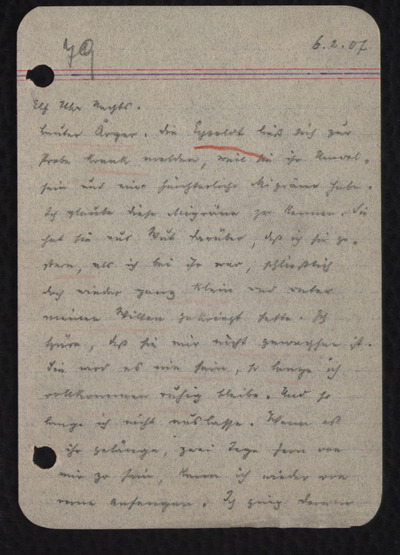 79
6.2.07
Elf Uhr Nachts.
Lauter Ärger. Die Eysoldt ließ sich zur
Probe krank melden, weil sie ihr Unwol-
sein und eine fürchterliche Migräne habe.
Ich glaube diese Migräne zu kennen. Sie
hat sie aus Wut darüber, daß ich sie ge-
stern, als ich bei ihr war, schließlich
doch wieder ganz klein und unter
meinen Willen gekriegt hatte. Ich
spüre, daß sie mir nicht gewachsen ist.
Sie wird es nie sein, so lange ich
vollkommen ruhig bleibe. Und so
lange ich nicht auslasse. Wenn es
ihr gelänge, zwei Tage fern von
mir zu sein, kann ich wieder von
vorne anfangen. Ich ging darum